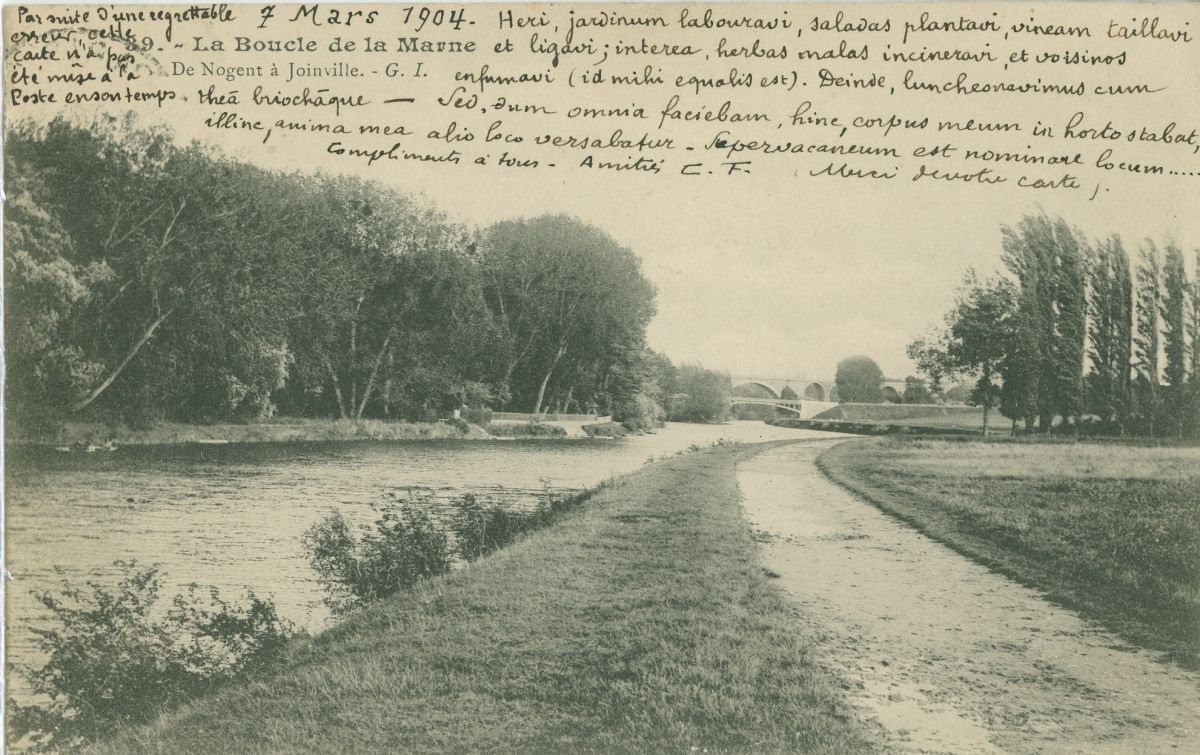 Par suite d'une regrettable
erreur cette
carte n'a pas
été mise à la
Poste en son temps.
7 Mars 1904.
39. - La Boucle de la Marne
De Nogent à Joinville. - G. I.
Heri, jardinum labouravi, saladas plantavi, vineam taillavi
et ligavi; interea, herbas malas incineravi, et voisinos
enfumavi (id mihi equalis est). Deinde, luncheonavimus cum
theā briochāque — Sed, dum omnia faciebam, hinc, corpus meum in horto stabat,
illinc, anima mea alio loco versabatur - Supervacaneum est nominare locum.....
Compliments à tous - Amitiés E. F. (Merci de votre carte).